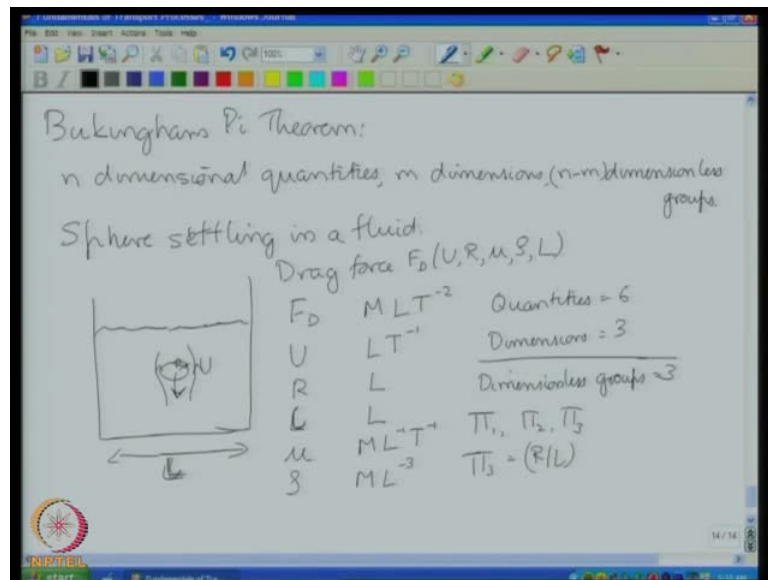 Fundamentals of Transport Processes - Windows Journal
File Edit View Insert Actions Tools Help
100%
B I
Bukinghams Pi Theorem:
n dimensional quantities, m dimensions, (n-m) dimensionless
groups.
Sphere settling in a fluid.
Drag force F_D (U, R, μ, ρ, L)
F_D MLT⁻² Quantities = 6
U LT⁻¹ Dimensions = 3
R L Dimensionless groups = 3
L L Π₁, Π₂, Π₃
μ ML⁻¹T⁻¹ Π₃ = (R/L)
ρ ML⁻³
R U
L
14 / 14
NPTEL
start